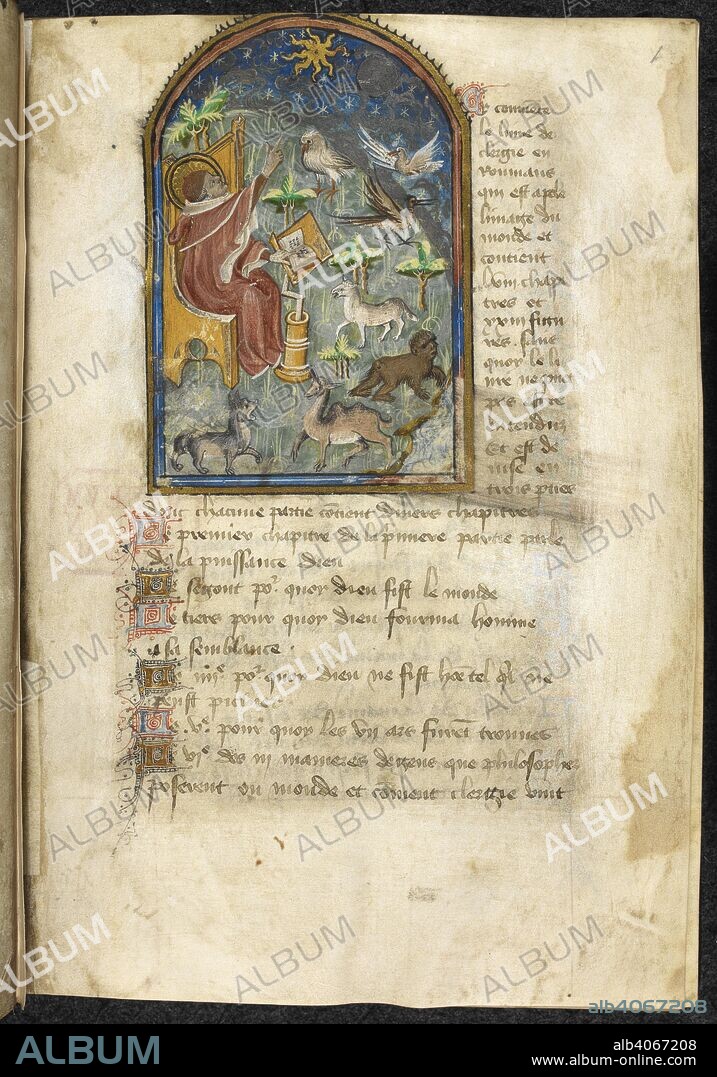 Cy comence
le livre de
clergie en
Roumans
qui est apele
limage du
monde et
contient
lviii chapi
tres et
xxviii figu
res. sans
quoy le li
vre ne puet
pas estre
entenduz
Et est de
vise en
trois pties
chacune partie cotient divers chapitres
Le premier chapitre de la pmiere partie parle
de la puissance dieu
segont po.r quoy dieu fist le monde
Le tiers pour quoy dieu fourma homme
a sa semblance
iiij.e po.r quoy dieu ne fist home tel ql ne
peust
v.e pour quoy les vii ars furent trouves
vi.e des iii manieres de gens que philosophes
poserent ou monde et coment clergie vint
ALBUM
alb4067208
ALBUM
alb4067208
www.album-online.com